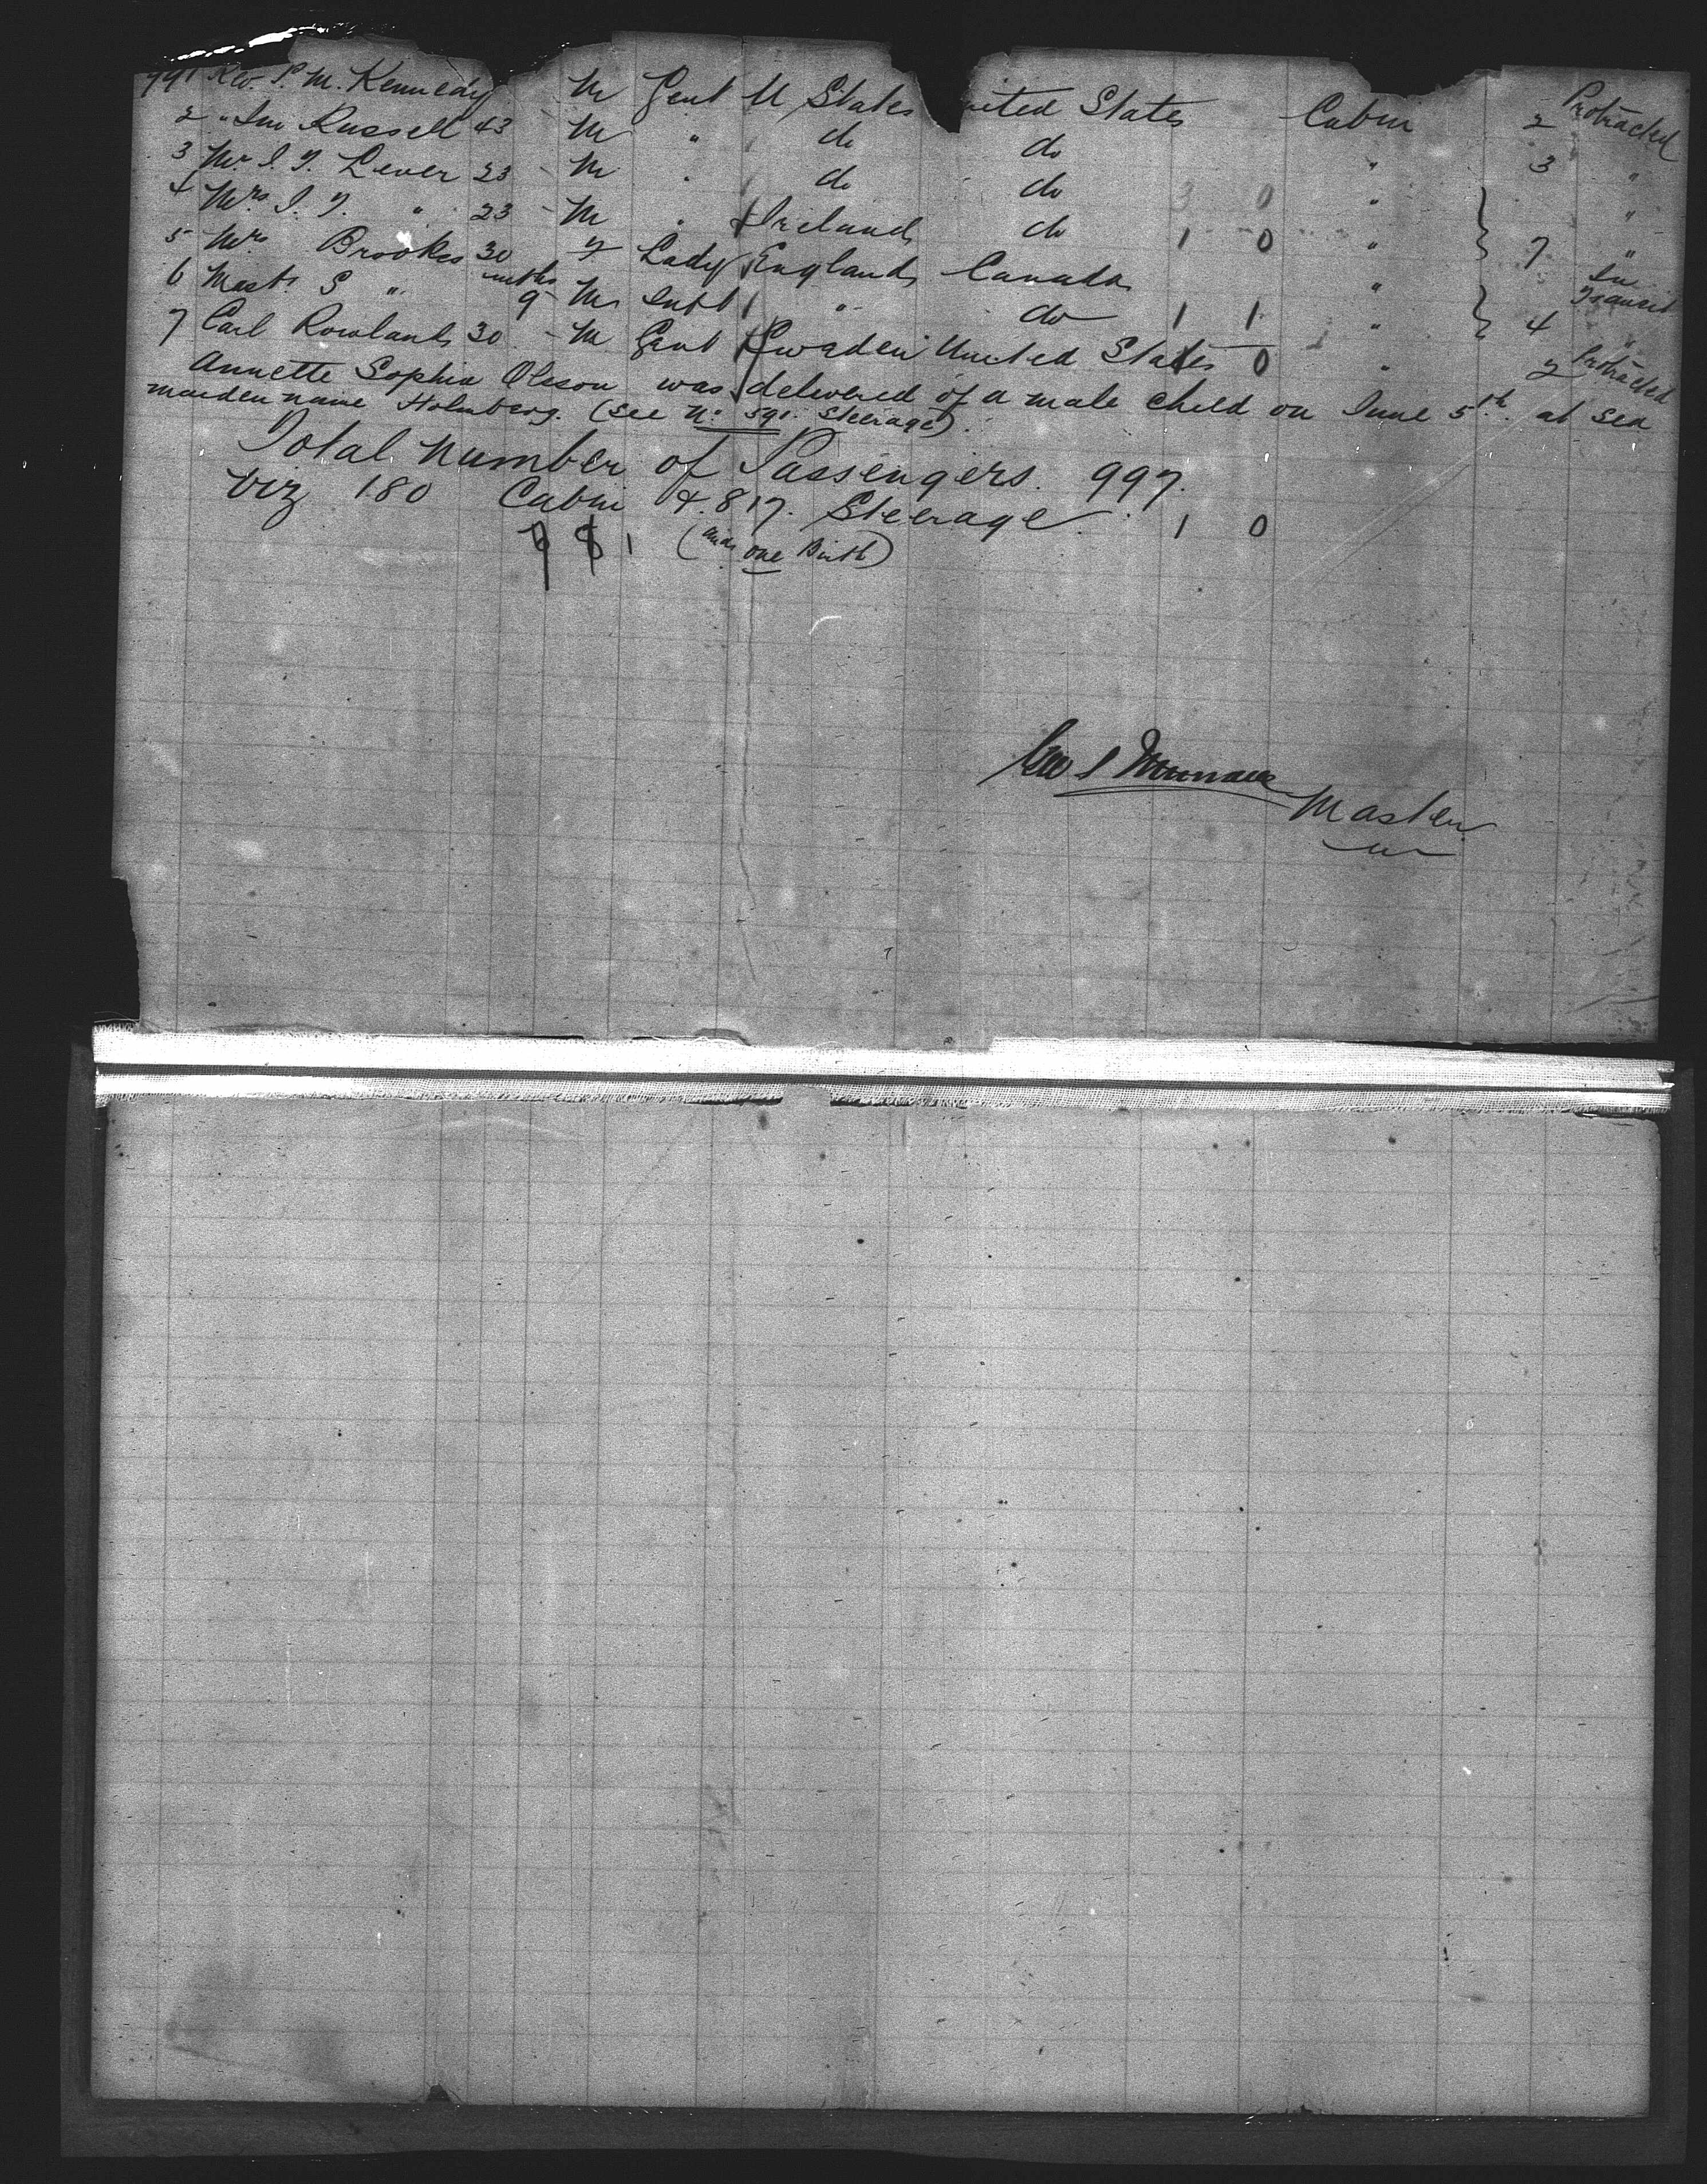 991 Rev. P. M. Kennedy M Gent U States United States Cabin 2 Protracted
2 " Russell 43 M " do do " 3 "
3 Mr. J. J. Lever 23 - M " do do 3 0 " "
4 Mrs J. J. " 23 - M " Ireland do 1 0 " 7 "
5 Mrs Brookes 30 f Lady England Canada " In Transit
6 Mast. S " 9 mths - M Inft " do 1 1 " 4 "
7 Carl Rowlands 30 - M Gent Sweden United States 0 " 2 Protracted
Annette Sophia Olsson was delivered of a male child on June 5th. at sea
maiden name Holmberg. (See No. 591. Steerage).
Total number of Passengers. 997.
Viz 180 Cabin & 817. Steerage. 1 0
(and one Birth)
Master